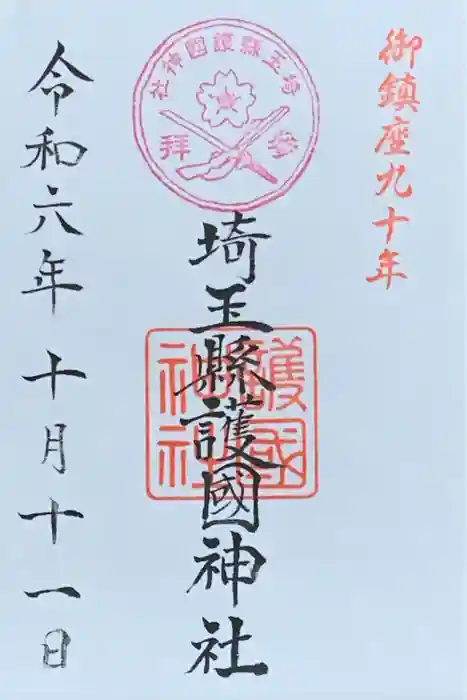 御鎮座九十年
埼玉縣護國神社
参拝
埼玉縣護國神社
護國
神社
令和六年十月十一日